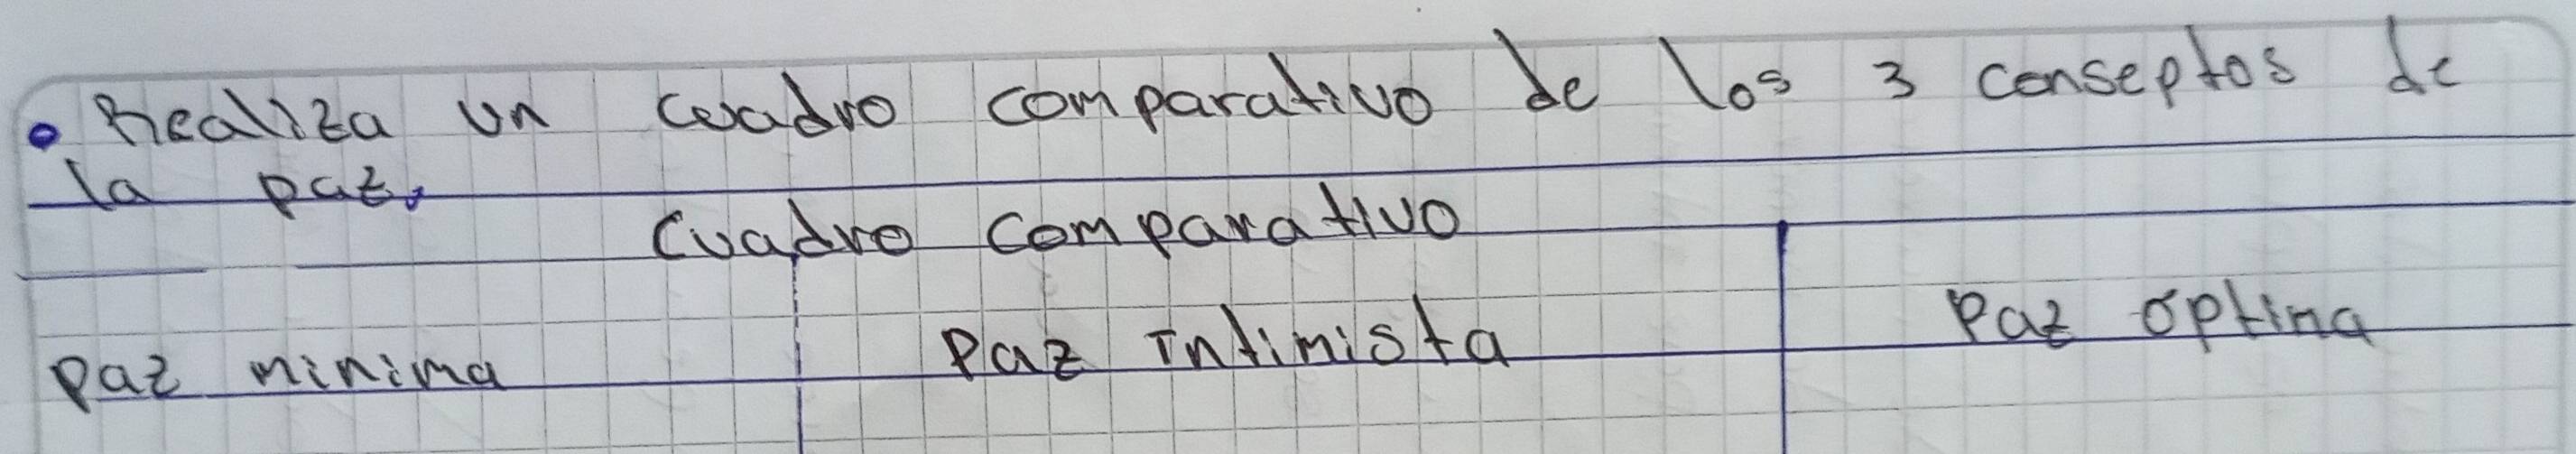 • Realiza un cuadro comparativo de los 3 conseptos de
la paz.
Cuadro comparativo
Paz minima
Paz Intimista
Paz optima